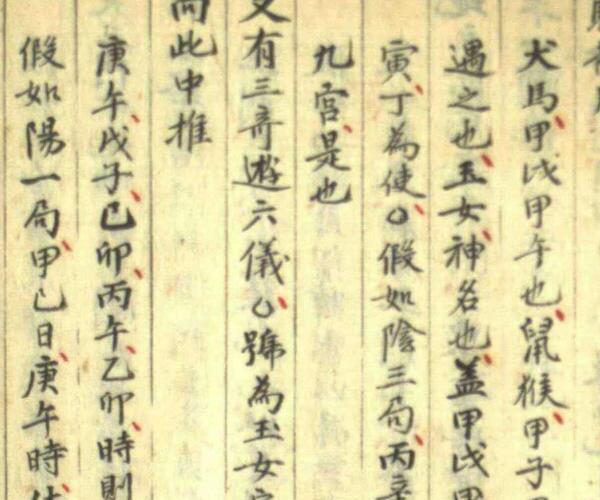 犬馬甲戌甲午也鼠猴甲子
遇之也玉女神名也盖甲戌
寅丁為使○假如陰三局丙辛
九宮是也
又有三奇遊六儀○號為玉女
而此中推
庚午戊子己卯丙午乙卯時則
假如陽一局甲己日庚午時